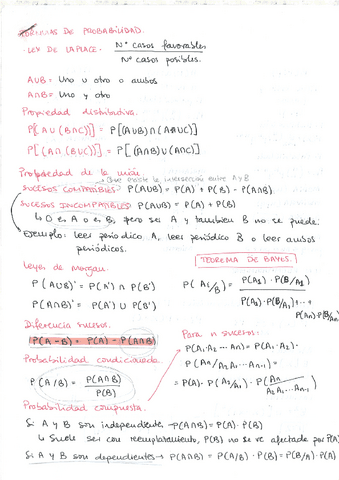 FÓRMULAS DE PROBABILIDAD.
· LEY DE LAPLACE - Nº casos favorables
Nº casos posibles.
A∪B = Uno u otro o ambos
A∩B = Uno y otro
Propiedad distributiva.
P[A ∪ (B∩C)] = P[(A∪B)∩(A∪C)]
P[(A∩(B∪C)] = P[(A∩B)∪(A∩C)]
Propiedad de la unión.
→ Que existe la intersección entre A y B
SUCESOS COMPATIBLES P(A∪B) = P(A) + P(B) - P(A∩B)
SUCESOS INCOMPATIBLES P(A∪B) = P(A) + P(B)
↳ O es A o es B, pero ser A y también B no se puede.
Ejemplo: leer periódico A, leer periódico B o leer ambos
periódicos.
Leyes de morgan.
TEOREMA DE BAYES.
P(A∪B)' = P(A'∩P(B')
P(A∩B)' = P(A') ∪ P(B')
P(A1/B) = P(A1) · P(B/A1)
P(A1)·P(B/A1)+...+
P(An)·P(B/An)
Diferencia sucesos.
P(A-B) = P(A) - P(A∩B)
Probabilidad condicionada.
P(A/B) = P(A∩B)
P(B)
Para n sucesos:
P(A1·A2...An) = P(A1·A2)·
P(An/A2A1...An-1) =
= P(A)· P(A2/A1) · P(An/A2A1...An-1)
Probabilidad compuesta.
Si A y B son independientes → P(A∩B) = P(A)·P(B)
↳ Suele ser con reemplazamiento, P(B) no se ve afectada por P(A)
Si A y B son dependientes → P(A∩B) = P(A/B) · P(B) = P(B/A)·P(A)